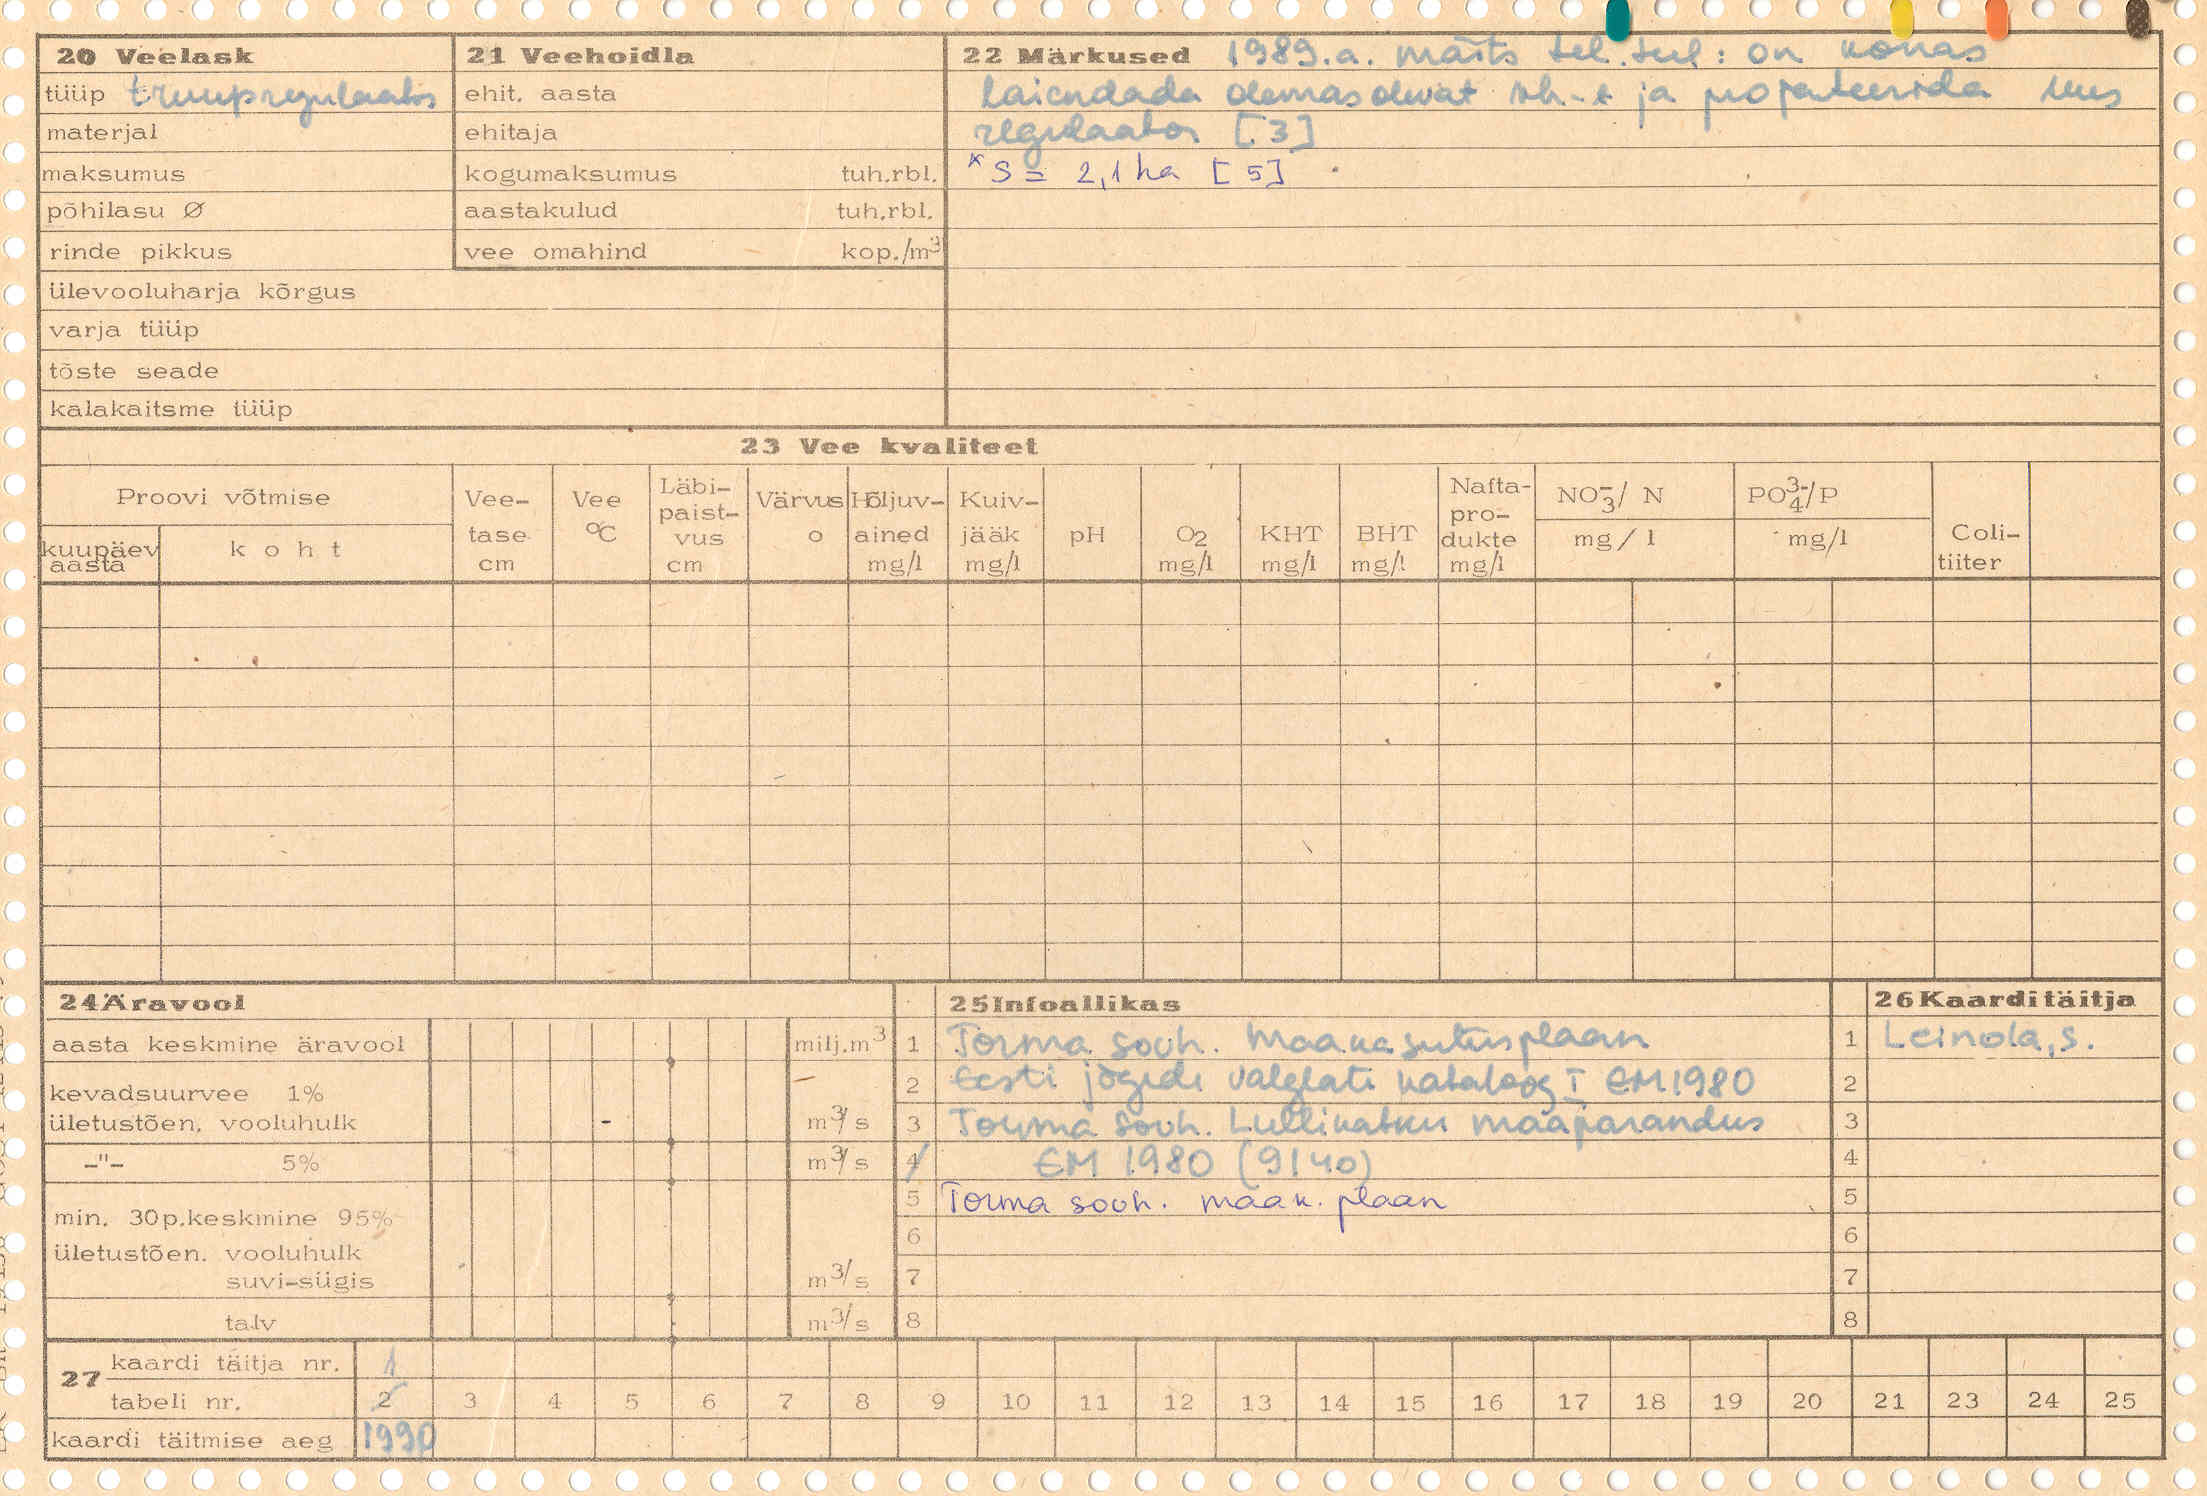 20 Veelask
tüüp truupregulaator
materjal
maksumus
põhilasu Ø
rinde pikkus
ülevooluharja kõrgus
varja tüüp
tõste seade
kalakaitsme tüüp
21 Veehoidla
ehit. aasta
ehitaja
kogumaksumus tuh.rbl.
aastakulud tuh.rbl.
vee omahind kop./m³
22 Märkused 1989.a. märts tel. : on kavas
laiendada olemasolevat vh-t ja projekteerida uus
regulaator [3]
* S = 2,1 ha [5]
23 Vee kvaliteet
Proovi võtmise
kuupäev aasta
koht
Vee-
tase
cm
Vee
°C
Läbi-
paist-
vus
cm
Värvus
o
Hõljuv-
ained
mg/l
Kuiv-
jääk
mg/l
pH
O2
mg/l
KHT
mg/l
BHT
mg/l
Nafta-
pro-
dukte
mg/l
NO₃⁻/ N
mg/l
PO₄³⁻/P
mg/l
Coli-
tiiter
24 Äravool
aasta keskmine äravool milj.m³
kevadsuurvee 1%
ületustõen. vooluhulk m³/s
-"- 5% m³/s
min. 30p.keskmine 95%
ületustõen. vooluhulk
suvi-sügis m³/s
talv m³/s
25 Infoallikas
1 Torma sovh. maakasutusplaan
2 Eesti jõgede valglate kataloog I EM 1980
3 Torma sovh. Lullikatku maaparandus
4 EM 1980 (9140)
5 Torma sovh. maak. plaan
6
7
8
26 Kaarditäitja
1 Leinola, S.
2
3
4
5
6
7
8
27 kaardi täitja nr. 1
tabeli nr. 2 3 4 5 6 7 8 9 10 11 12 13 14 15 16 17 18 19 20 21 23 24 25
kaardi täitmise aeg 1990